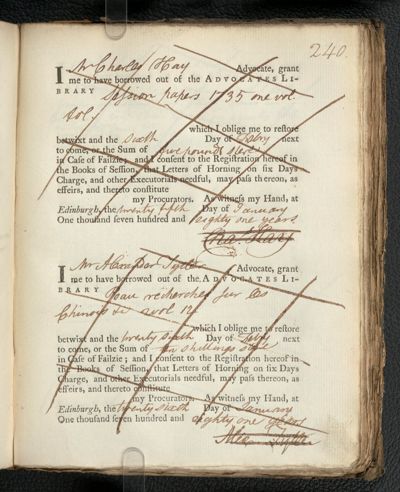 240.
I Mr Charles Hay Advocate, grant
me to have borrowed out of the ADVOCATES LI-
BRARY Session papers 1735 one vol.
fol.
which I oblige me to restore
betwixt and the Sixth Day of Febry next
to come, or the Sum of five pounds Ster
in Case of Failzie; and I consent to the Registration hereof in
the Books of Session, that Letters of Horning on six Days
Charge, and other Executorials needful, may pass thereon, as
effeirs, and thereto constitute
my Procurators. As witness my Hand, at
Edinburgh, the twenty fifth Day of January
One thousand seven hundred and eighty one years
Chas. Hay
I Mr Alexander Tytler Advocate, grant
me to have borrowed out of the ADVOCATES LI-
BRARY Paw recherches sur les
Chinois &c vol 12
which I oblige me to restore
betwixt and the twenty sixth Day of Febry next
to come, or the Sum of ten shillings Ster
in Case of Failzie; and I consent to the Registration hereof in
the Books of Session, that Letters of Horning on six Days
Charge, and other Executorials needful, may pass thereon, as
effeirs, and thereto constitute
my Procurators. As witness my Hand, at
Edinburgh, the twenty sixth Day of January
One thousand seven hundred and eighty one years
Alexr Tytler